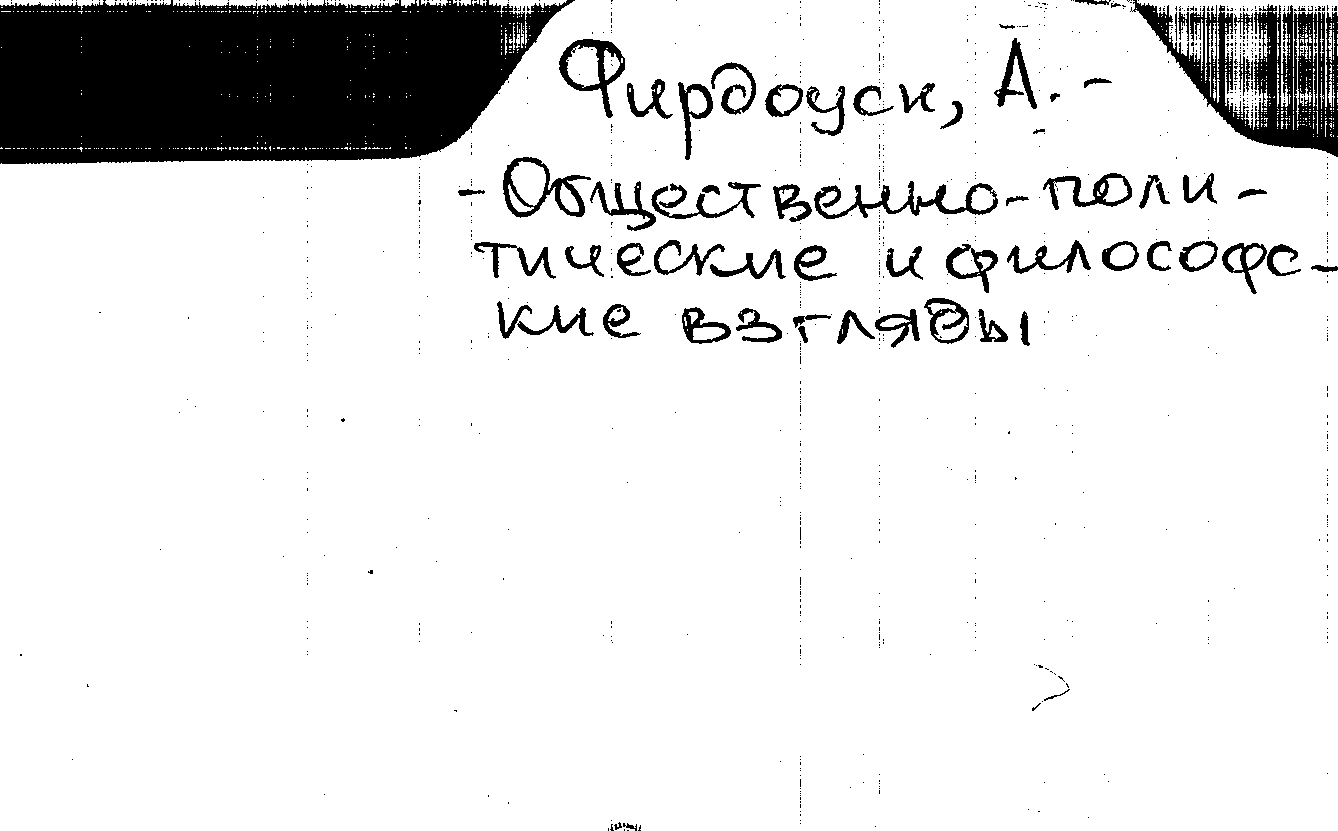 Фирдоуси, А. -
- Общественно-поли-
тические и философс-
кие взгляды